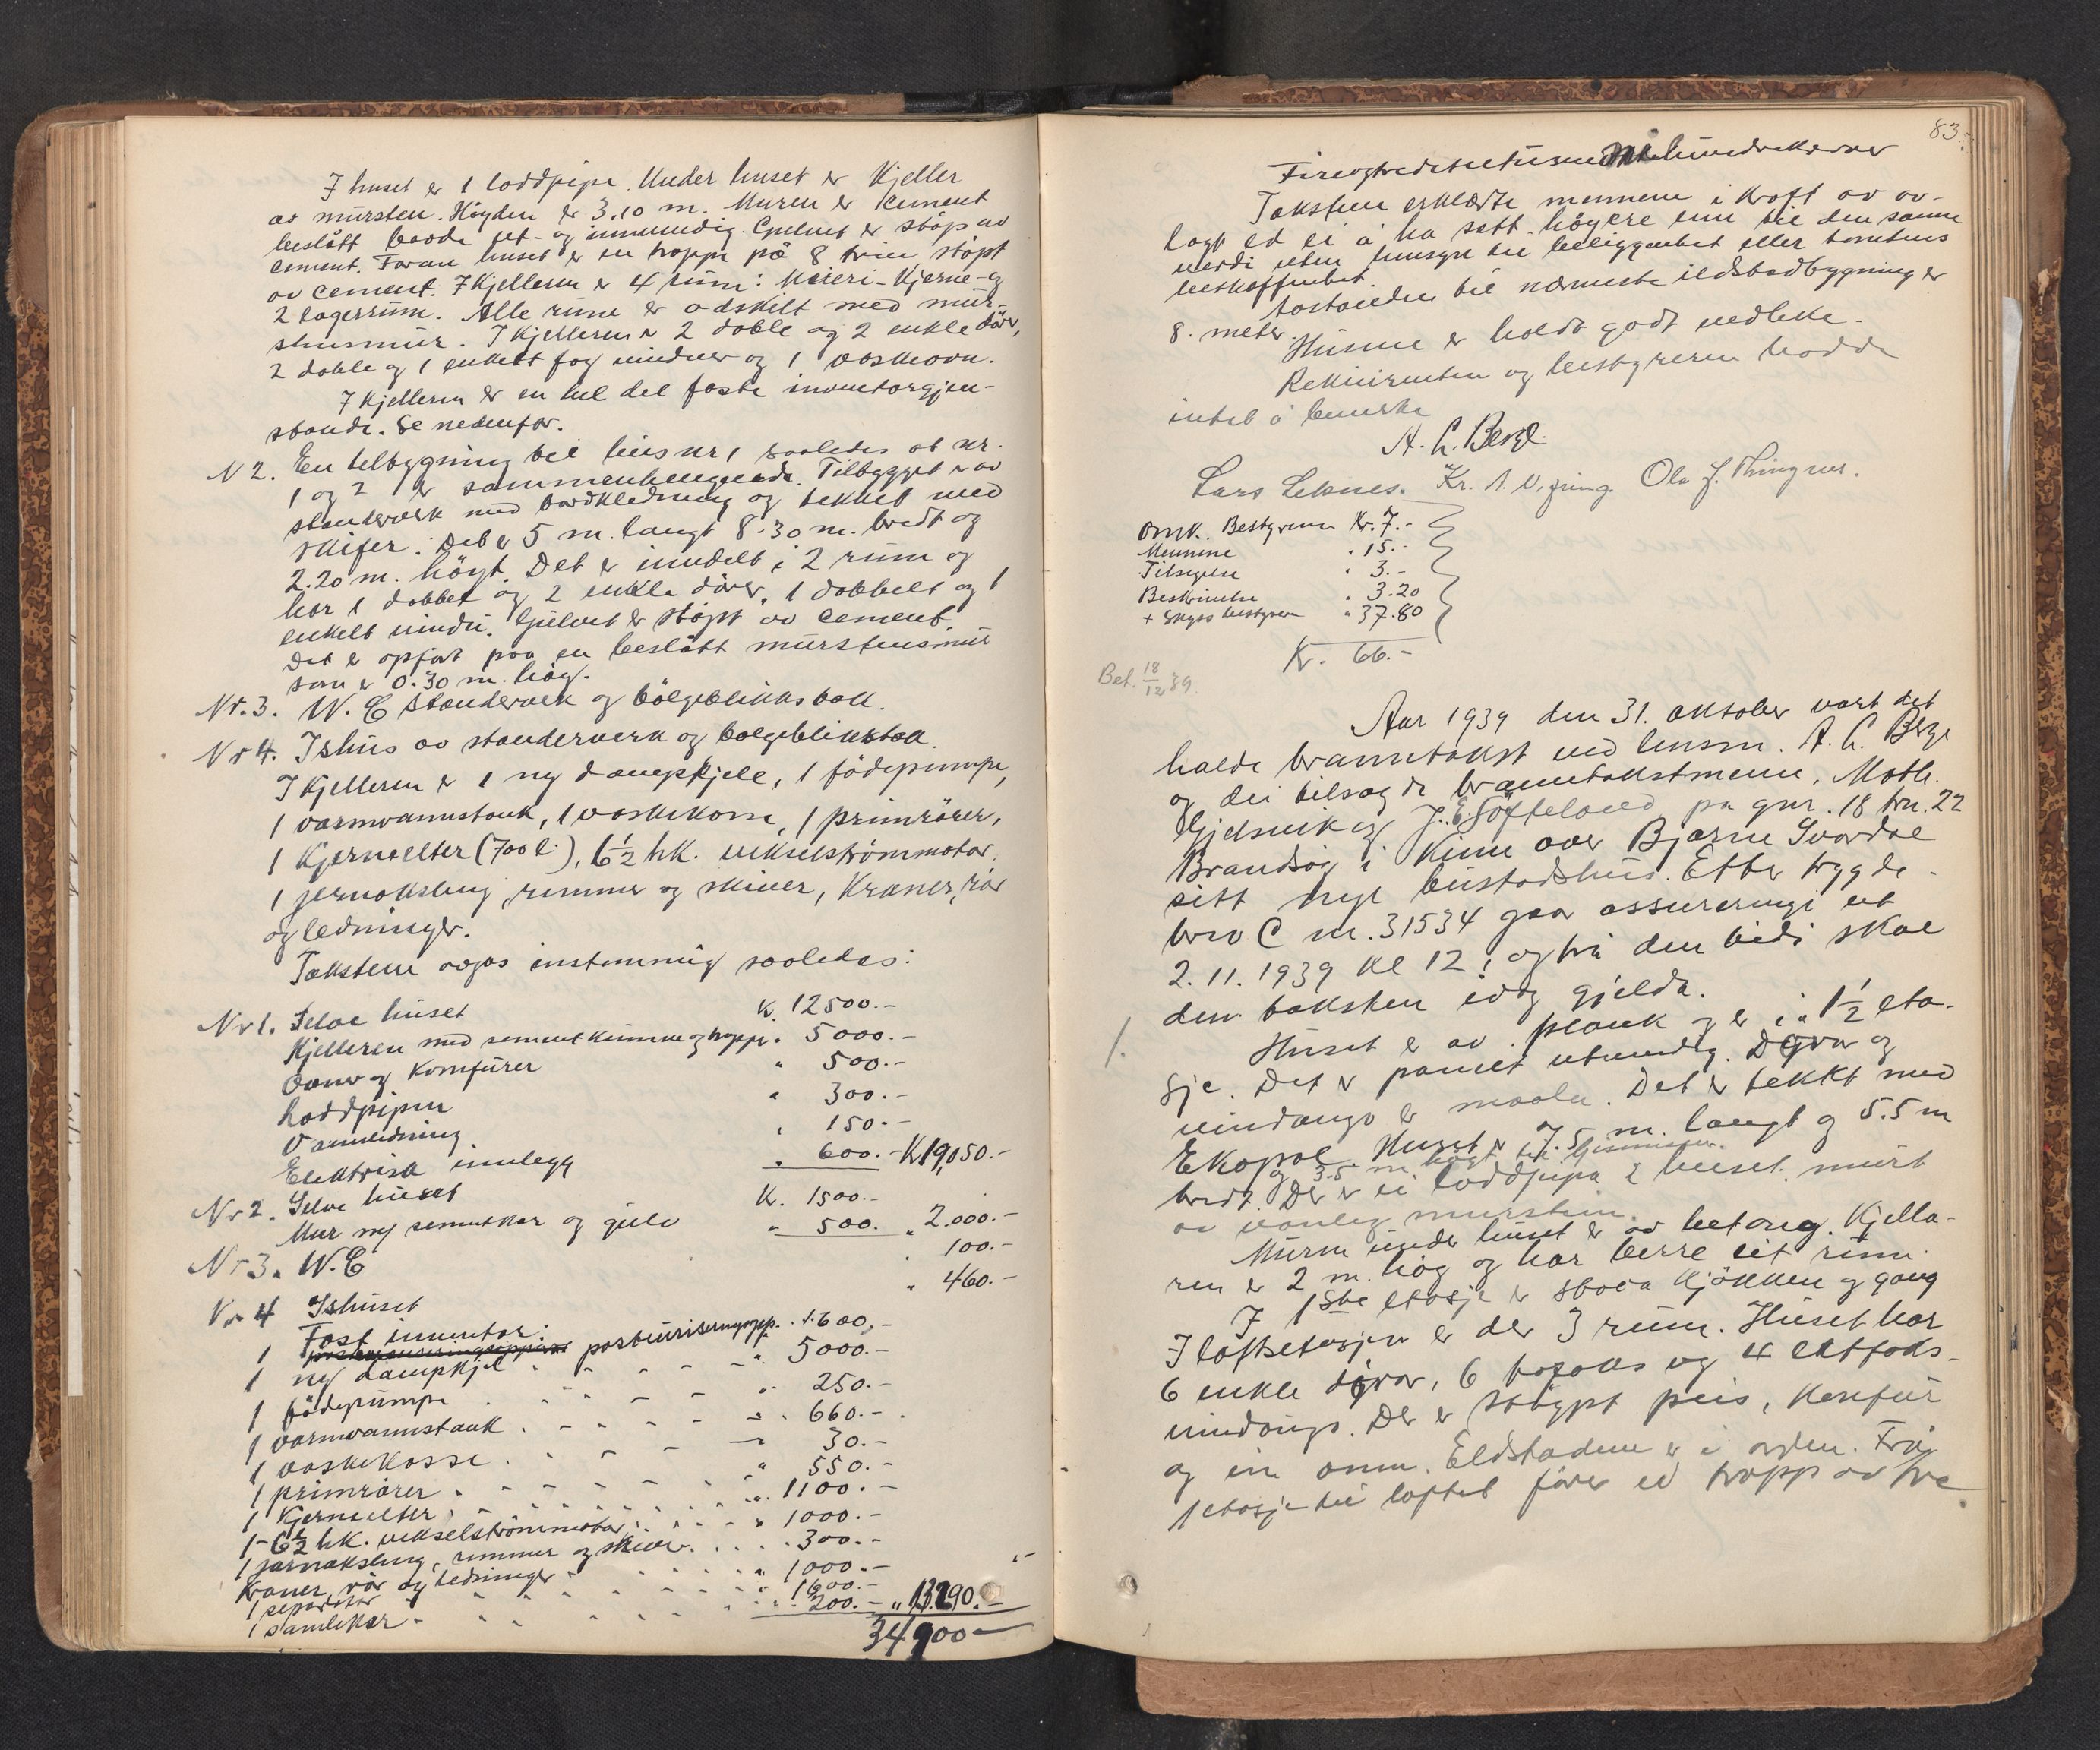 I huset er 1 loddpipe. Under huset er Kjeller
av mursten. Høyden er 3,10 m. Muren er cement
beslått baade ut- og innvendig. Gulvet er støp av
cement. Foran huset er en trapp på 8 trin støpt
av cement. I Kjelleren er 4 rum: Meieri- Kjerne- og
2 lagerrum. Alle rum er adskilt med mur-
stensmur. I Kjelleren er 2 doble og 2 enkle dører,
2 doble og 1 enkelt fag vinduer og 1 vaskeovn.
I Kjelleren er en hel del faste inventargjen-
stande. Se nedenfor.
N 2. En tilbygning til hus nr 1 saaledes at nr.
1 og 2 er sammenhengende. Tilbygget er av
standverk med bordkledning og tekket med
skifer. Det er 5 m. langt 8.30 m. bredt og
2.20 m. höyt. Det er inndelt i 2 rum og
har 1 dobbel og 2 enkle dörer, 1 dobbelt og 1
enkelt vindu. Gulvet er støpt av cement.
Det er opfört paa en beslått murstensmur
som er 0.30 m. høg.
Nr. 3. W.C standverk og bölgeblikkstak.
Nr 4. Ishus av standerverk og bølgeblikktak.
I Kjelleren er 1 ny dampkjele, 1 födepumpe,
1 varmvannstank, 1 vaskekasse, 1 primrörer,
1 Kjerneelter (700 l.), 6½ hk. vekselströmmotor,
1 jernaksling, remmer og skiver, Kraner, rör
og ledninger.
Taksten avgas enstemmig saaledes:
Nr 1. Selve huset K. 12500.-
Kjelleren med sement kumme og trapp " 5000.-
Ovner og Komfürer " 500.-
Loddpipen " 300.-
Vannledning " 150.-
Elektrisk innlegg " 600.- K 19,050.-
Nr 2. Selve huset K. 1500.-
Mur m/ sementkar og gulv " 500. " 2.000.-
Nr 3. W.C " 100.-
Nr 4 Ishuset " 460.-
Fast inventar:
1 pasteuriseringsapp. 1.600,-
1 ny dampkjel " 5000.-
1 födepumpe " 250.-
1 varmvannstank " 660.-
1 vaskekasse " 30.-
1 primrörer " 550.-
1 Kjerneelter " 1100.-
1- 6½ hk. vekselströmmotor " 1000.-
1 jarnaksling, remmer og skiver 300.-
Kraner, rör og ledninger " 1000.-
1 separator " 1600.-
1 samlekar 200.- " 13.290.-
34900-
83.
Fireogtredvetusennihundrekroner
Taksten erklærte mennene i kraft av av-
lagt ed ei å ha satt högere enn til den sanne
verdi uten hensyn til beliggenhet eller tomtens
beskaffenhet.
Avstanden til nærmeste ildstedbygning er
8. meter.
Husene er holdt godt vedlike.
Rekvirenten og bestyreren hadde
intet å bemerke
A. L. Berge.
Lars Leknes. Kr. A. Vefring. Ola J. Thingnes.
Omk. Bestyreren Kr. 7.-
Mennene " 15.-
Tilsigelse " 3.-
Beskrivelse " 3.20
+ Skyss bestyrer " 37.80
Kr. 66.-
Bet. 18/12 39.
Aar 1939 den 31. oktober vart det
halde branntakst ved lensm. A. L. Berge
og dei tilsagde branntakstmenn, Math.
Hjelmvik og J. E. Softeland på gnr. 18 brn. 22
Brandsøy i Kinn over Bjarne Svardal
sitt nye bustadshus. Etter trygde-
brev C nr. 31534 gaar assureringi ut
2.11.1939 Kl 12, og frå den tidi skal
den taksten idag gjelda.
1. Huset er av plank og er i 1½ eta-
sje. Det er panelt utvendig. Dører og
vindaugo er maala. Det er tekkt med
Ekopal. Huset er 7.5 m. langt og 5.5 m
og 3.5 m högt til gjennomsn.
bredt. Der er ei loddpipa i huset murt
av vanleg murstein.
Muren under huset er av betong. Kjella-
ren er 2 m. høg og har berre eit rum.
I 1ste etasje er stova kjökken og gang
I loftsetasjen er der 3 rum. Huset har
6 enkle dører, 6 tofags og 4 eittfags-
vindaugo. Der er støypt peis, Komfur
og ein omn. Eldstadene er i orden. Frå
1 etasje til loftet fører ei trapp av tre